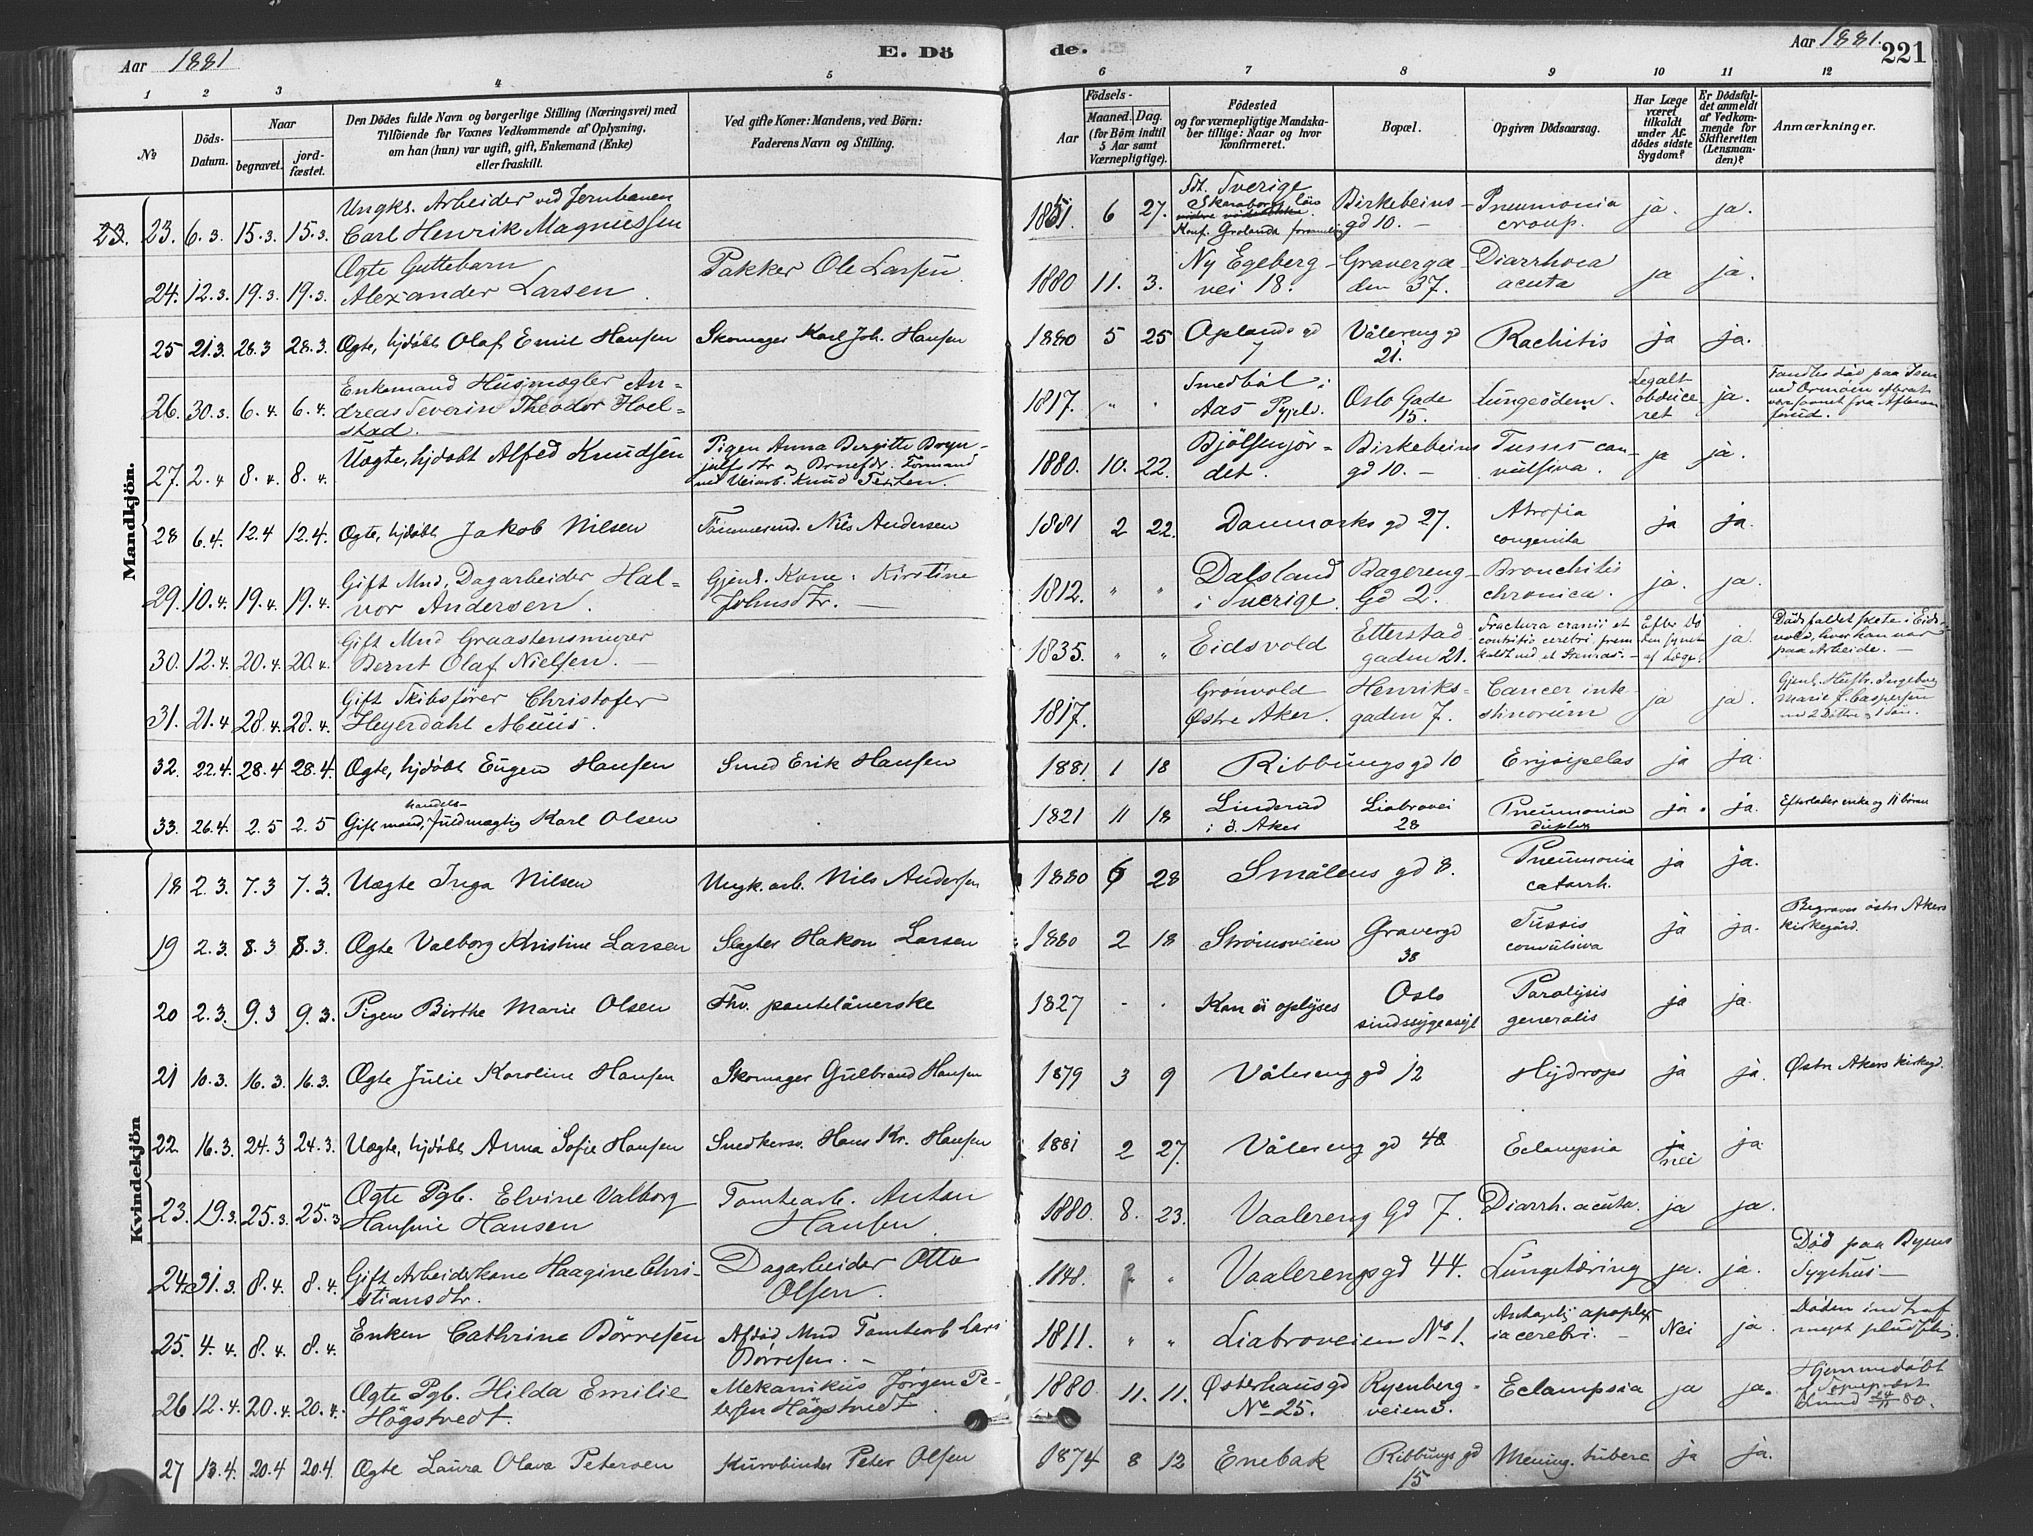 Aar 1881
E. Dö
de.
Aar 1881.
221
1 2 3 4 5 6 7 8 9 10 11 12
No
Döds-Datum.
Naar
begravet.
jord-fæstet.
Den Dödes fulde Navn og borgerlige Stilling (Næringsvei) med
Tilföiende for Voxnes Vedkommende af Oplysning,
om han (hun) var ugift, gift, Enkemand (Enke)
eller fraskilt.
Ved gifte Koner: Mandens, ved Börn:
Faderens Navn og Stilling.
Födsels-
Aar
Maaned. Dag.
(for Börn indtil
5 Aar samt
Værnepligtige).
Födested
og for værnepligtige Mandska-
ber tillige: Naar og hvor
konfirmeret.
Bopæl.
Opgiven Dödsaarsag.
Har Læge
været
tilkaldt
under Af-
dödes sidste
Sygdom?
Er Dödsfal-
det anmeldt
af Vedkom-
mende for
Skifteretten
(Lensman-
den)?
Anmærkninger.
Mandkjön.
23. 23. 6.3. 15.3. 15.3. Ungks. Arbeider ved Jernbanen
Carl Henrik Magnussen 1851. 6 27. Sverige
Skaraborgs län
Konf. Grolanda
Birkebeins-
gd 10.
Pneumonia
croup. ja. ja.
24. 12.3. 19.3. 19.3. Ægte Guttebarn
Alexander Larsen Pakker Ole Larsen 1880 11. 3. Ny Egeberg-
vei 18. Graverga-
den 37. Diarrhoea
acuta ja ja.
25 21.3. 28.3 28.3. Ægte, hjdøbt Olaf Emil Hansen Skomager Karl Joh. Hansen 1880 5 25 Oplands gd
7 Vålereng gd
21. Rachitis ja ja.
26. 30.3. 6.4. 6.4. Enkemand Husmægler An-
dreas Severin Theodor Hoel-
stad. 1817. " . Smedböl i
Aas Oslo Gade
15. Lungeödem. Legalt
obduce
ret ja.
27. 2.4 8.4. 8.4. Uægte, hjdøbt Alfred Knudsen Pigen Anna Birgitte Bryn-
julfsdtr og Formand
ved Veiarb. Knud 1880. 10. 22. Bjölsenjör-
det. Birkebeins
gd 10. Tussis con-
vulsiva. ja ja.
28 6.4. 12.4 12.4. Ægte, hjdöbt Jakob Nilsen Tömmermd. Nils Andersen 1881 2 22. Danmarks gd 27. Atrofia
congenita ja ja.
29. 10.4. 19.4. 19.4. Gift Mnd, Dagarbeider Hal-
vor Andersen. Gjenl. Kone: Kirstine
Johnsdtr. 1812. " " Dalsland
i Sverige. Bagereng-
Gd 2. Bronchitis
chronica. ja. ja.
30. 12.4. 20.4. 20.4. Gift Mnd Graastensmurer
Bernt Olaf Nielsen. 1835. " " Eidsvold Etterstad
gaden 21. Fractura cranii et
contritio cerebri, frem-
kaldt ved et Efter Dö
den synet
af Læge. ja. Dödsfaldet skete i Eids-
vold, hvor han var
paa Arbeide.
31. 21.4 28.4. 28.4. Gift Skibsförer Christofer
Heyerdahl Muus. 1817. Grönvold
Østre Aker. Henriks-
gaden 7. Cancer inte-
stinorum ja ja. Gjenl. Hustr. Ingeborg
Marie Caspersen
2 Döttre 1 Sön.
32. 22.4. 28.4 28.4. Ægte, hjdøbt Eugen Hansen Smed Erik Hansen 1881. 1 18 Ribbungs gd 10 Erysipelas ja ja.
33. 26.4. 2.5 2.5 Gift mand, handels-
fuldmægtig Karl Olsen 1821 11 18 Linderud
i Ö. Aker Liabrovei
28 Pneumonia
duplex ja. ja. Efterlader enke og 11 börn
Kvindekjön
18 2.3. 7.3 7.3. Uægte Inga Nilsen Ungk. arb. Nils Andersen 1880 6 28 Smålens gd 8. Pneumonia
catarrh. ja ja.
19 2.3. 8.3 8.3. Ægte Valborg Kristine Larsen Slagter Hakon Larsen 1880 2 18 Strömsveien Gravergd
38 Tussis
convulsiva ja ja. Begraves östre Akers
kirkegård.
20 2.3. 9.3 9.3. Pigen Birthe Marie Olsen Fhv. pantelånerske 1827 - . Kan ei oplyses Oslo
sindssygeasyl Paralysis
generalis ja ja.
21 10.3. 16.3. 16.3. Ægte Julie Karoline Hansen Skomager Gulbrand Hansen 1879 3 9 Vålereng gd 12 Hydrops ja ja. Østre Akers kirkegd.
22. 16.3. 24.3 24.3. Uægte, hjdøbt Anna Sofie Hansen Snedkersv. Hans Kr. Hansen 1881 2 27. Vålereng gd 48 Eclampsia ja
nei ja
23. 19.3. 25.3. 25.3. Ægte Pgb. Elvine Valborg
Hansine Hansen Tomtearb. Anton
Hansen 1880. 8. 23. Vaalereng Gd 7. Diarrh. acuta. ja ja.
24. 31.3. 8.4. 8.4. Gift Arbeiderkone Haagine Chri-
stiansdtr. Dagarbeider Otto
Olsen. 1848. " Vaalerengs gd 44. Lungetæring ja. ja. Död paa Byens
Sygehus
25. 4.4. 8.4. 8.4. Enken Cathrine Börresen Afdöd Mnd Tomtearb Lars
Börresen. 1811. " " Liabroveien No 1. Antagelig apoplex-
ia cerebri. Nei ja. Döden indtraf
meget pludselig.
26 12.4. 20.4. 20.4. Ægte Pgb. Hilda Emilie
Högstvedt Mekanikus Jørgen Pe-
tersen Högstvedt 1880. 11. 11. Østerhausgd
No 25. Ryenberg-
veien 3. Eclampsia ja ja. Hjemmedöbt
Lund 24/11 80.
27 13.4. 20.4 20.4. Ægte Laura Olava Petersen Kurvbinder Peter Olsen 1874 8 12 Enebak Ribbungs gd
15 Mening. tuberc ja ja.